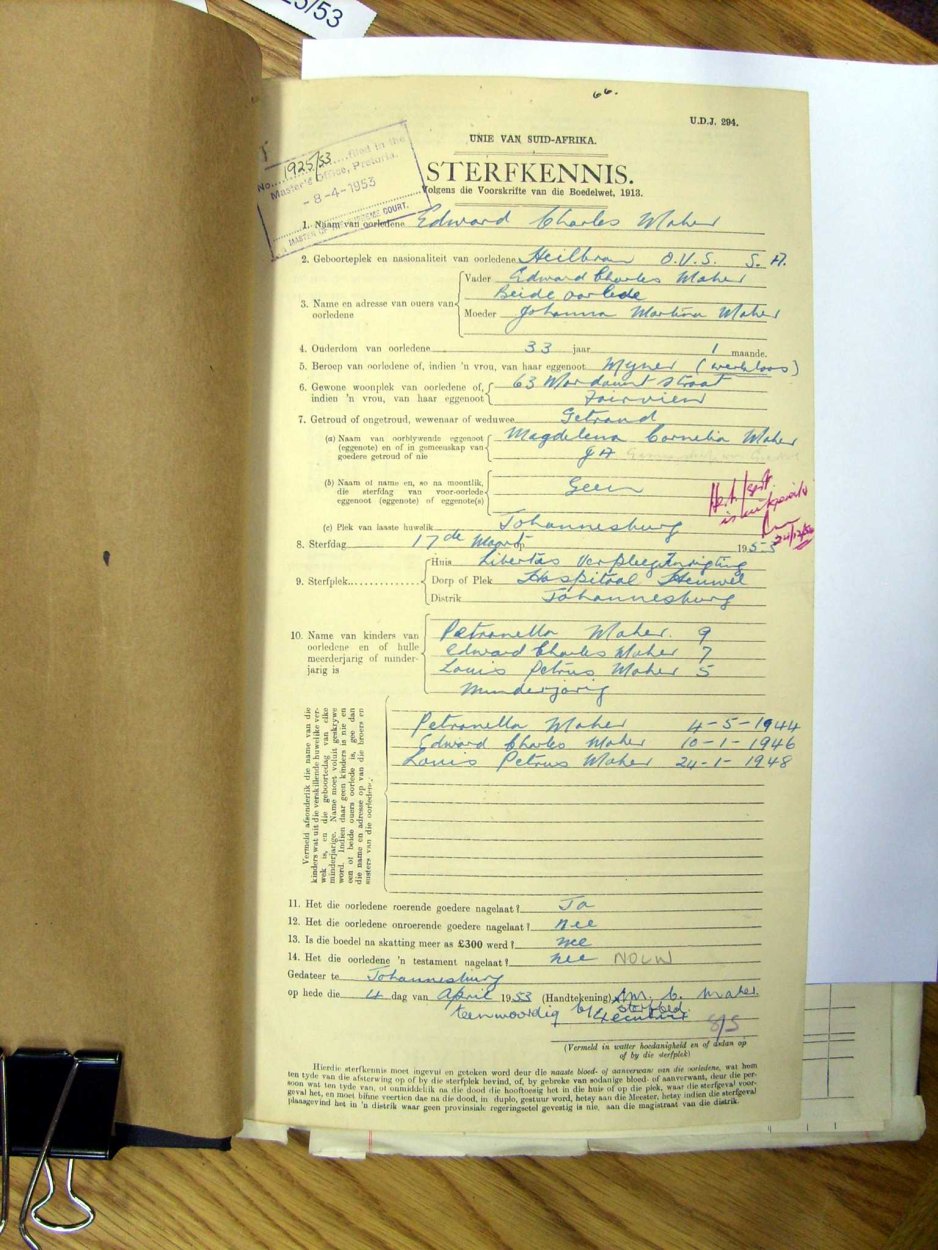 25/53
66.
U.D.J. 294.
UNIE VAN SUID-AFRIKA.
No. 1925/53 filed in the
Master's Office, Pretoria.
- 8-4-1953
MASTER OF THE SUPREME COURT.
STERFKENNIS.
Volgens die Voorskrifte van die Boedelwet, 1913.
1. Naam van oorledene Edward Charles Maher
2. Geboorteplek en nasionaliteit van oorledene Heilbron O.V.S. S.A.
3. Name en adresse van ouers van oorledene
Vader Edward Charles Maher
Beide oorlede
Moeder Johanna Martina Maher
4. Ouderdom van oorledene 33 jaar 1 maande.
5. Beroep van oorledene of, indien 'n vrou, van haar eggenoot Myner (werkloos)
6. Gewone woonplek van oorledene of, indien 'n vrou, van haar eggenoot
63 Mordaunt Straat
Fairview
7. Getroud of ongetroud, wewenaar of weduwee Getroud
(a) Naam van oorblywende eggenoot (eggenote) en of in gemeenskap van goedere getroud of nie
Magdelena Cornelia Maher
JA
(b) Naam of name en, so na moontlik, die sterfdag van voor-oorlede eggenoot (eggenote) of eggenote(s)
Geen
(c) Plek van laaste huwelik Johannesburg
8. Sterfdag 17de Maart 1953
9. Sterfplek
Huis Libertas Verpleeg Inrigting
Dorp of Plek Hospitaal Heuwel
Distrik Johannesburg
10. Name van kinders van oorledene en of hulle meerderjarig of minderjarig is
Petronella Maher. 9
Edward Charles Maher 7
Louis Petrus Maher 5
Minderjarig
Vermeld afsonderlik die name van die
kinders wat uit die verskillende huwelike ver-
wek is, en die geboortedag van elke
minderjarige. Name moet voluit geskrywe
word. Indien daar geen kinders is nie en
een of beide ouers oorlede is, gee dan
die name en adresse op van die broers en
susters van die oorledene.
Petronella Maher 4-5-1944
Edward Charles Maher 10-1-1946
Louis Petrus Maher 24-1-1948
11. Het die oorledene roerende goedere nagelaat? Ja
12. Het die oorledene onroerende goedere nagelaat? Nee
13. Is die boedel na skatting meer as £300 werd? nee
14. Het die oorledene 'n testament nagelaat? nee NOUW
Gedateer te Johannesburg
op hede die 4 dag van April 1953 (Handtekening) M. C. Maher
teenwoordig by sterfbed.
(Vermeld in watter hoedanigheid en of aldan op
of by die sterfplek)
Hierdie sterfkennis moet ingevul en geteken word deur die naaste bloed- of aanverwant van die oorledene, wat hom
ten tyde van die afsterwing op of by die sterfplek bevind, of, by gebreke van sodanige bloed- of aanverwant, deur die per-
soon wat ten tyde van, of onmiddellik na die dood die hooftoesig het in die huis of op die plek, waar die sterfgeval voor-
geval het, en moet binne veertien dae na die dood, in duplo, gestuur word, hetsy aan die Meester, hetsy indien die sterfgeval
plaasgevind het in 'n distrik waar geen provinsiale regeringsetel gevestig is nie, aan die magistraat van die distrik.